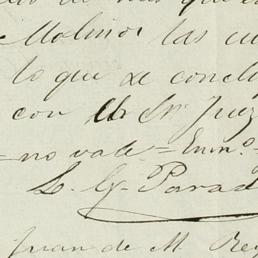 Molinos las cu
lo que se conclu
con el Sr Juez
= no vale = Enm.o =
L. G. Parad
Juan de M. Rey